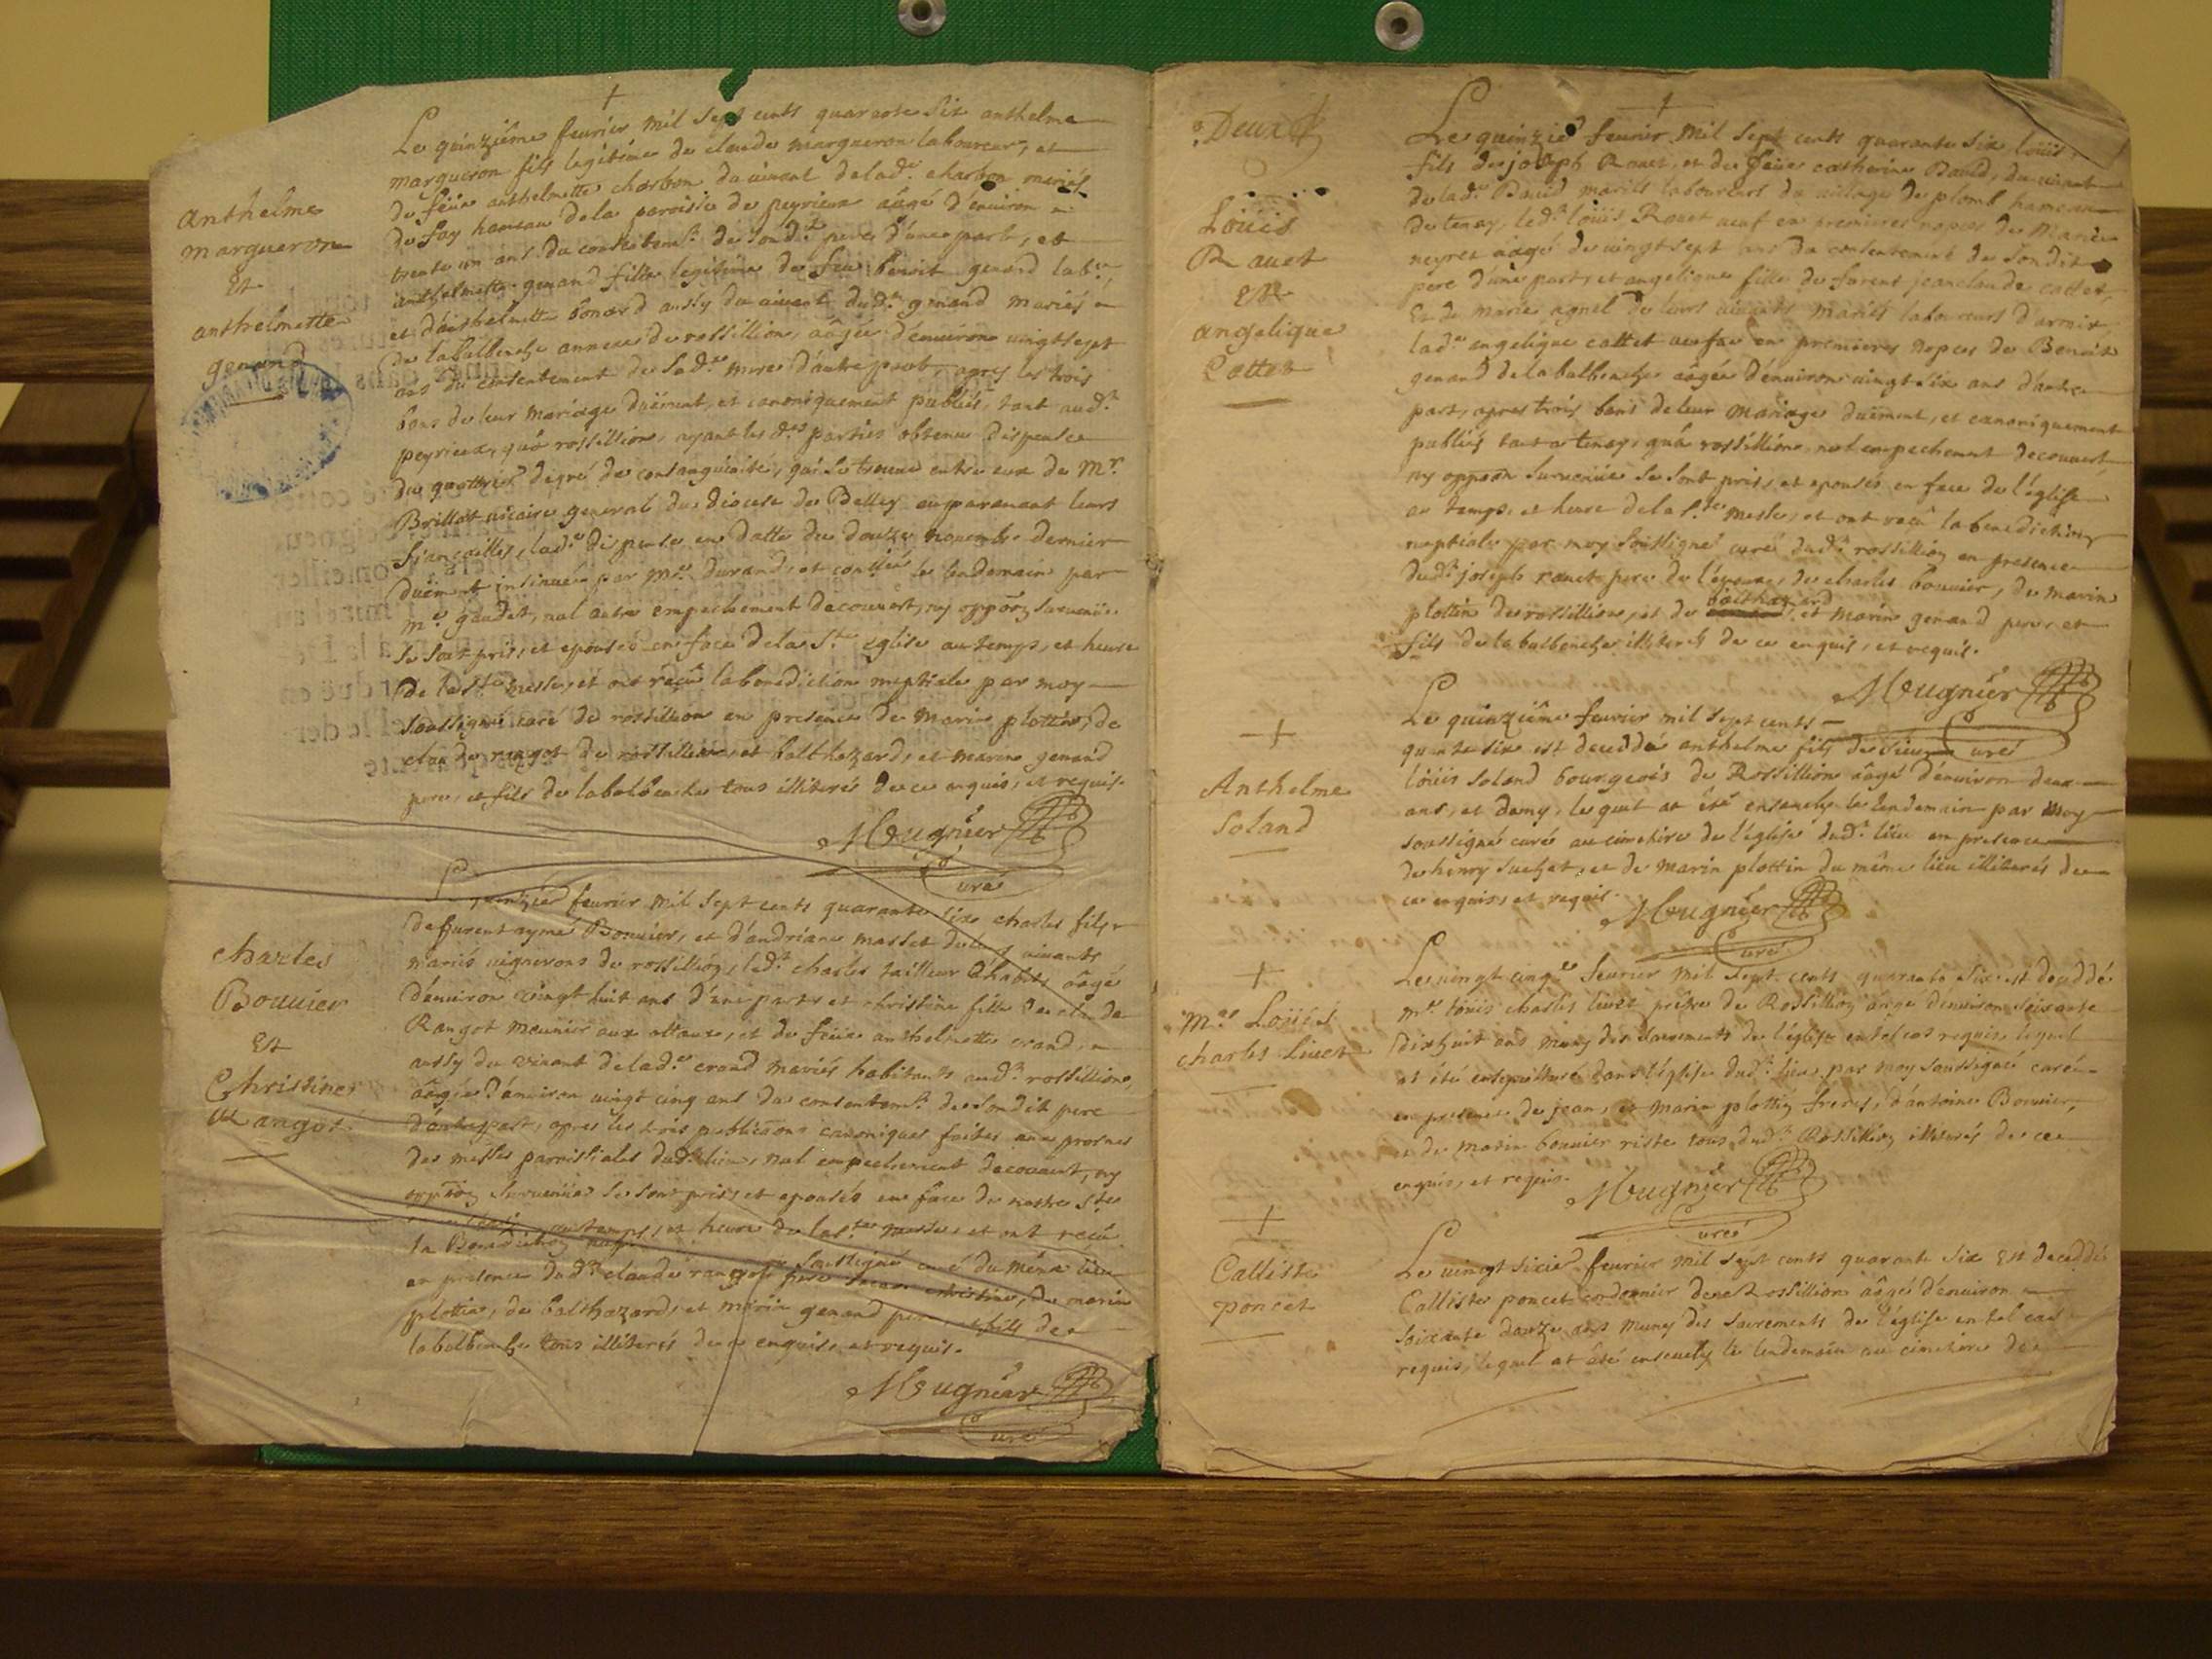 anthelme
margueron
Et
anthelmette
genand
+
Le quinziême feurier mil sept cents quarante six anthelme
margueron fils legitime de claude margueron laboureur, et
de feüe anthelmette charbon du uiuant de lad.e charbon mariés
de fay hameau de la paroisse de peyrieux aâgé d'enuiron
trente un ans du consentem.t de sond.t pere d'une part, et
anthelmette genand fille legitime de feu benoit genand lab.r
et d'anthelmette bonard aussy du uiuant dud.t genand mariés
de labalbenche annexe de rossillion, aâgée d'enuiron uingt sept
ans du consentement de sad.e mere d'autre part, apres les trois
bans de leur mariage duëment, et canoniquement publiés, tant aud.t
peyrieux, qu'à rossillion, ayant les d.es parties obtenu dispense
du quattrie degré de consanguinité, qui se treuue entre eux de M.r
Brillat uicaire general du diocese de Belley auparauant leurs
fiançailles, lad.e dispense en datte du douze nouembre dernier
duëment insinuée par m.re durand, et contllée le lendemain par
m.e gaudet, nul autre empechement decouuert, ny oppõon suruenüe
se sont pris, et epousés en face de la S.te eglise au temps, et heure
de la S.te messe, et ont reçu la benediction nuptiale par moy
soussigné curé de rossillion en presence de marin plottin, de
claude rangot de rossillion, et balthazard, et marin genand
pere, et fils de labalbenche tous illiterés de ce enquis, et requis.
Meugnier
curé
charles
Bouuier
Et
Christine
Rangot
Le quinzie feurier mil sept cents quarante six charles fils
de furent aymé Bouuier, et d'andriane masset de leurs uiuants
mariés uignerons de rossillion, led.t charles tailleur d'habits aâgé
d'enuiron vingt huit ans d'une part, et christine fille de claude
Rangot meunier aux ottaux, et de feüe anthelmette crand,
aussy du viuant de lad.e crand mariés habitants aud.t rossillion,
aâgée d'enuiron uingt cinq ans du consentem.t de sondit pere
d'autre part, apres les trois publicãons canoniques faites aux prosnes
des messes paroissiales dud.t lieu, nul empechement decouuert, ny
oppõon suruenüe se sont pris, et epousés en face de nostre S.te
au temps, et heure de la s.te messe, et ont reçu
la Benediction nuptiale soussigné curé du même lieu
en presence dud.t claude rangot pere christine, de marin
plottin, de balthazard, et marin genand pere, et fils de
labalbenche tous illiterés de ce enquis, et requis.
Meugnier
curé
Deux
Loüis
Rauet
Et
angelique
Cottet
+
Le quinzie feurier mil sept cents quarante six loüis
fils de joseph Rauet, et de feüe catherine Bauid, du uiuant
de lad.e Bauid mariés laboureurs du uillage de plomb hameau
de tenay, led.t loüis Rauet ueuf en premieres nopces de Marie
neyret aagé de uingt sept ans du consentement de sondit
pere d'une part, et angelique fille de furent jean claude cottet,
Et de marie agnel de leurs uiuants mariés laboureurs d'armix,
lad.e angelique cottet ueufue en premieres nopces de Benoit
genand de labalbenche aâgée d'enuiron uingt six ans d'autre
part, apres trois bans de leur mariage duëment, et canoniquement
publiés tant a tenay, qu'à rossillion, nul empechement decouuert,
ny oppõon suruenüe se sont pris, et epousés en face de l'église
au temps, et heure de la S.te messe, et ont reçu la benediction
nuptiale par moy soussigné curé dud.t rossillion en presence
dud.t joseph rauet pere de l'epoux, de charles bouuier, de marin
plottin de rossillion, et de balthazard, et marin genand pere, et
fils de labalbenche illiterés de ce enquis, et requis.
Meugnier
curé
+
Anthelme
Soland
Le quinziême feurier mil sept cents
quarante six est deceddé anthelme fils de sieur
loüis soland bourgeois de Rossillion aâgé d'enuiron deux
ans, et demy, lequel at êté enseuely le lendemain par moy
soussigné curé au cimetire de l'église dud.t lieu en presence
de henry suchet, et de marin plottin du même lieu illiterés de
ce enquis, et requis.
Meugnier
curé
+
M.re Loüis
charles Liuet
Le uingt cinq.e feurier mil sept cents quarante six est deceddé
m.re loüis charles liuet prêtre de Rossillion aâgé d'enuiron soixante
dix huit ans muny des sacrements de l'église en tel cas requis, lequel
at êté enseputturé dans l'église dud.t lieu par moy soussigné curé
en presence de jean, et marin plottin freres, d'antoine Bouuier,
et de marin bouuier riste tous dud.t Rossillion illiterés de ce
enquis, et requis.
Meugnier
curé
+
Calliste
poncet
Le uingt sixie feurier mil sept cents quarante six Est deceddé
Calliste poncet cordonnier de Rossillion aâgé d'enuiron
soixante douze ans muny des sacrements de l'église en tel cas
requis, lequel at êté enseuely le lendemain au cimetire de